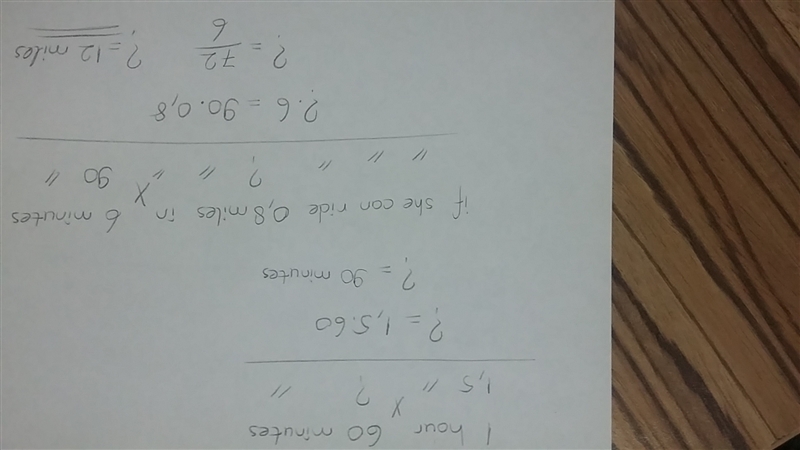 1 hour 60 minutes
1,5 " x ? "
? = 1,5.60
? = 90 minutes
if she can ride 0,8 miles in 6 minutes
" " " ? " " x 90 "
?.6 = 90.0,8
? = 72/6 ? = 12 miles